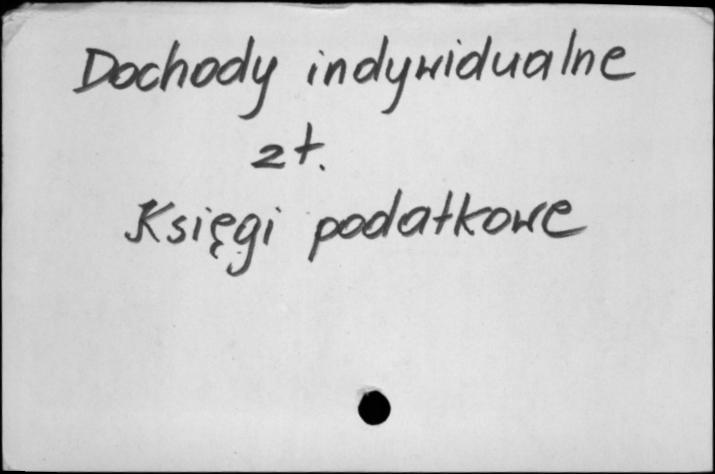 Dochody indywidualne
zł.
Księgi podatkowe